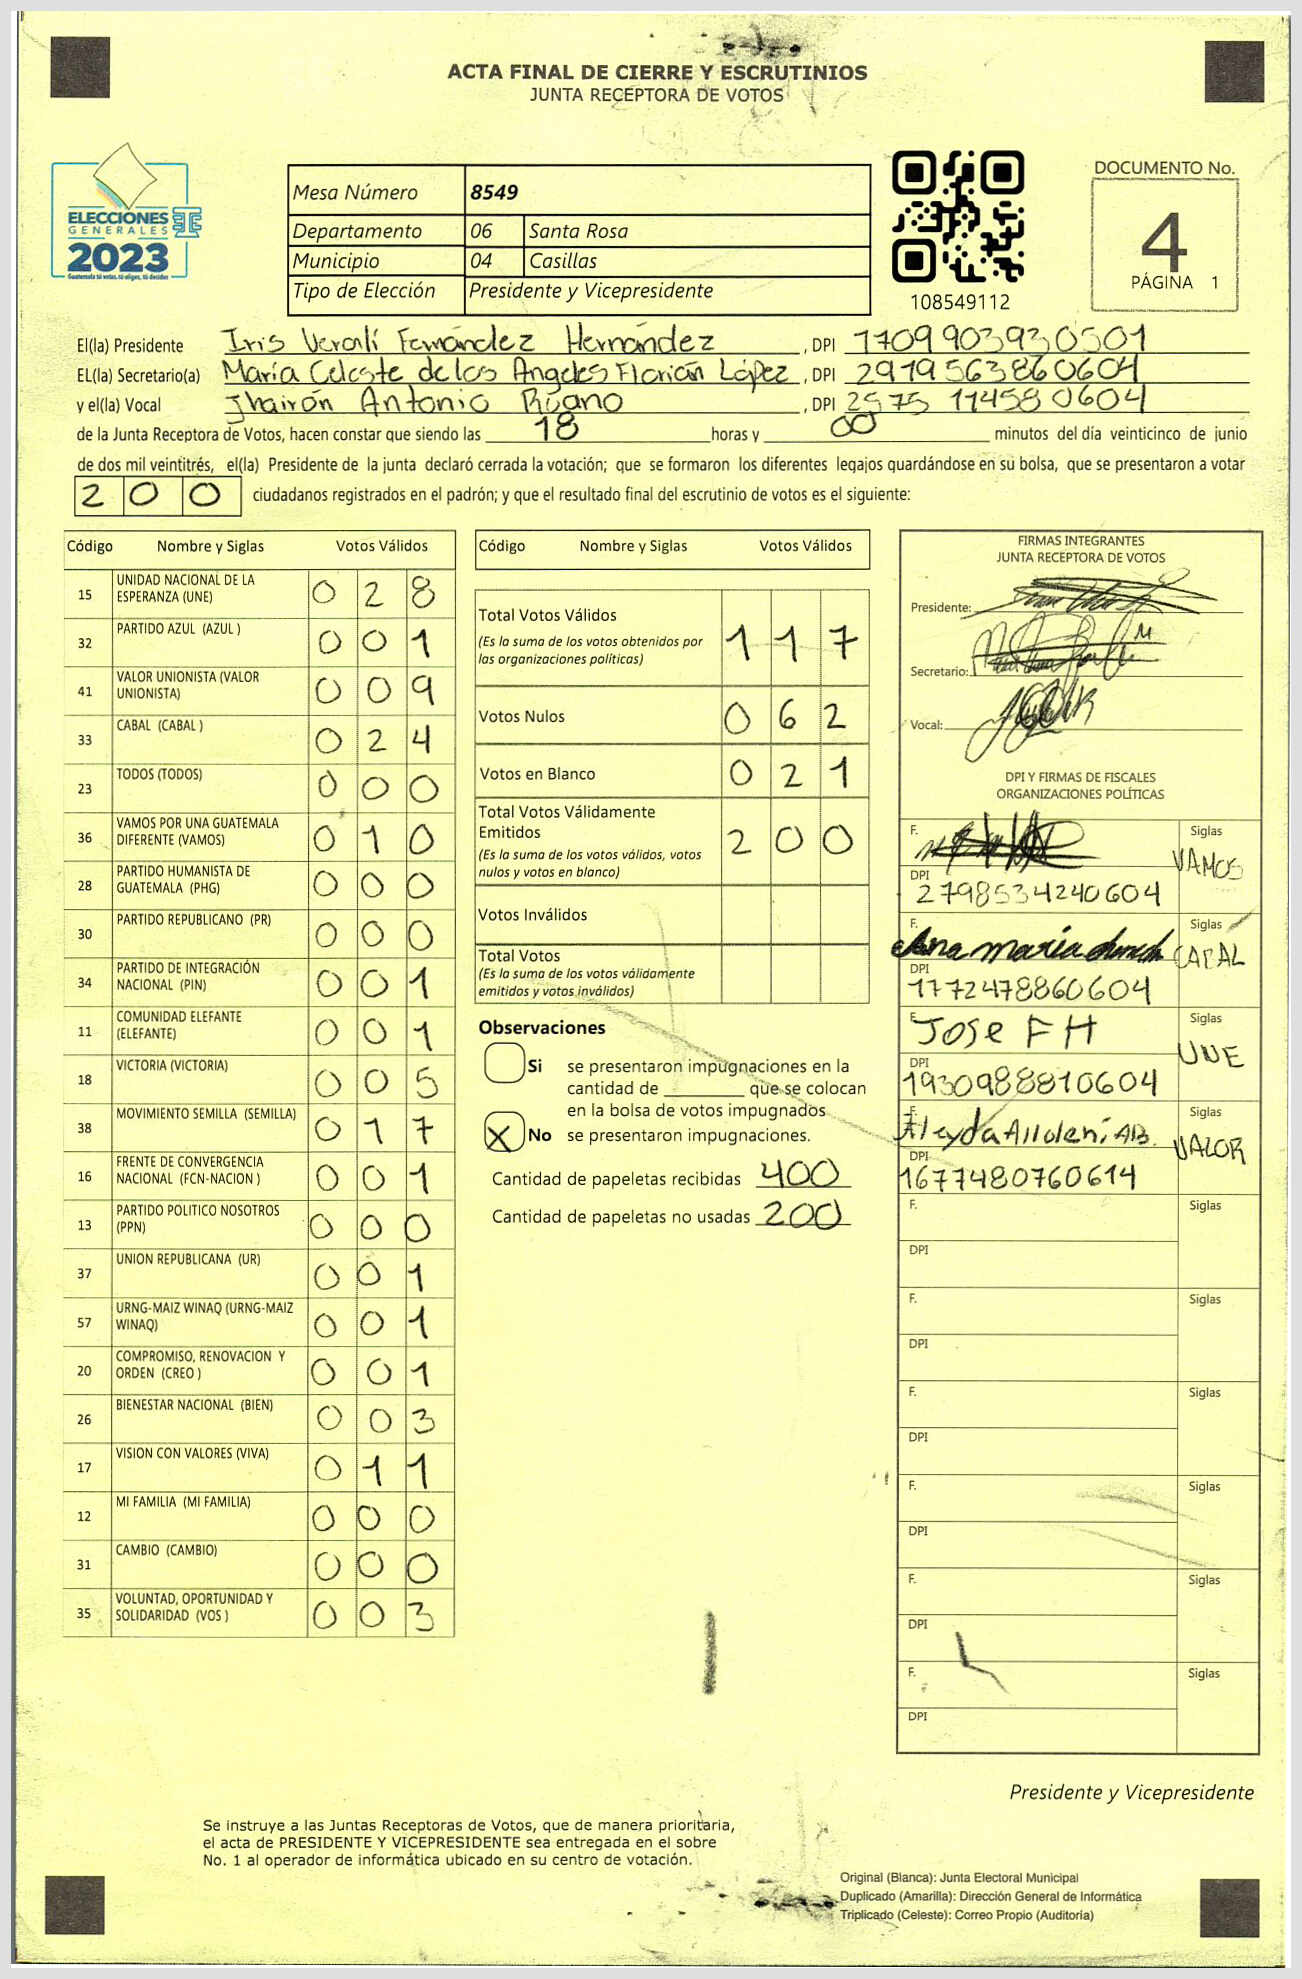 ACTA FINAL DE CIERRE Y ESCRUTINIOS
JUNTA RECEPTORA DE VOTOS
ELECCIONES
GENERALES
2023
Guatemala tú votas, tú eliges, tú decides
Mesa Número 8549
Departamento 06 Santa Rosa
Municipio 04 Casillas
Tipo de Elección Presidente y Vicepresidente
108549112
DOCUMENTO No.
4
PÁGINA 1
El(la) Presidente Iris Veralí Fernández Hernández , DPI 1709903930501
EL(la) Secretario(a) María Celeste de los Angeles Florián López , DPI 2979563860604
y el(la) Vocal Jhairón Antonio Ruano , DPI 2575 114580604
de la Junta Receptora de Votos, hacen constar que siendo las 18 horas y 00 minutos del día veinticinco de junio
de dos mil veintitrés, el(la) Presidente de la junta declaró cerrada la votación; que se formaron los diferentes legajos guardándose en su bolsa, que se presentaron a votar
200 ciudadanos registrados en el padrón; y que el resultado final del escrutinio de votos es el siguiente:
Código Nombre y Siglas Votos Válidos
15 UNIDAD NACIONAL DE LA ESPERANZA (UNE) 028
32 PARTIDO AZUL (AZUL ) 001
41 VALOR UNIONISTA (VALOR UNIONISTA) 009
33 CABAL (CABAL ) 024
23 TODOS (TODOS) 000
36 VAMOS POR UNA GUATEMALA DIFERENTE (VAMOS) 010
28 PARTIDO HUMANISTA DE GUATEMALA (PHG) 000
30 PARTIDO REPUBLICANO (PR) 000
34 PARTIDO DE INTEGRACIÓN NACIONAL (PIN) 001
11 COMUNIDAD ELEFANTE (ELEFANTE) 001
18 VICTORIA (VICTORIA) 005
38 MOVIMIENTO SEMILLA (SEMILLA) 017
16 FRENTE DE CONVERGENCIA NACIONAL (FCN-NACION ) 001
13 PARTIDO POLITICO NOSOTROS (PPN) 000
37 UNION REPUBLICANA (UR) 001
57 URNG-MAIZ WINAQ (URNG-MAIZ WINAQ) 001
20 COMPROMISO, RENOVACION Y ORDEN (CREO ) 001
26 BIENESTAR NACIONAL (BIEN) 003
17 VISION CON VALORES (VIVA) 011
12 MI FAMILIA (MI FAMILIA) 000
31 CAMBIO (CAMBIO) 000
35 VOLUNTAD, OPORTUNIDAD Y SOLIDARIDAD (VOS ) 003
Código Nombre y Siglas Votos Válidos
Total Votos Válidos 117
(Es la suma de los votos obtenidos por
las organizaciones políticas)
Votos Nulos 062
Votos en Blanco 021
Total Votos Válidamente
Emitidos 200
(Es la suma de los votos válidos, votos
nulos y votos en blanco)
Votos Inválidos
Total Votos
(Es la suma de los votos válidamente
emitidos y votos inválidos)
Observaciones
Si se presentaron impugnaciones en la
cantidad de ________ que se colocan
en la bolsa de votos impugnados
X No se presentaron impugnaciones.
Cantidad de papeletas recibidas 400
Cantidad de papeletas no usadas 200
FIRMAS INTEGRANTES
JUNTA RECEPTORA DE VOTOS
Presidente:
Secretario:
Vocal:
DPI Y FIRMAS DE FISCALES
ORGANIZACIONES POLÍTICAS
F. Siglas VAMOS
DPI 2798534240604
F. Ana maria Siglas CABAL
DPI 1772478860604
F. Jose F H Siglas UNE
DPI 1930988810604
F. Siglas VALOR
DPI 1677480760614
F. Siglas
DPI
F. Siglas
DPI
F. Siglas
DPI
F. Siglas
DPI
F. Siglas
DPI
F. Siglas
DPI
Presidente y Vicepresidente
Se instruye a las Juntas Receptoras de Votos, que de manera prioritaria,
el acta de PRESIDENTE Y VICEPRESIDENTE sea entregada en el sobre
No. 1 al operador de informática ubicado en su centro de votación.
Original (Blanca): Junta Electoral Municipal
Duplicado (Amarilla): Dirección General de Informática
Triplicado (Celeste): Correo Propio (Auditoría)